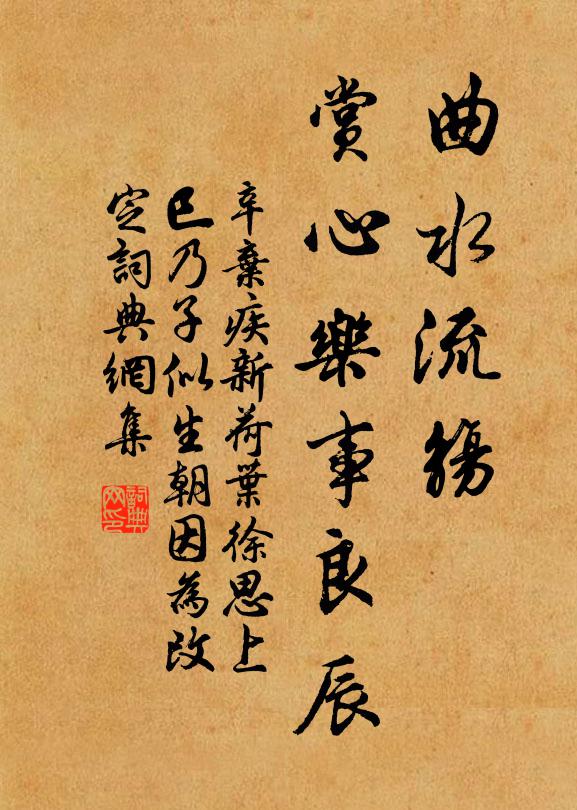 曲水流觴
賞心樂事良辰
辛棄疾新荷葉徐思上
巳乃子似生朝因為改
定詞典網集
詞典
网印